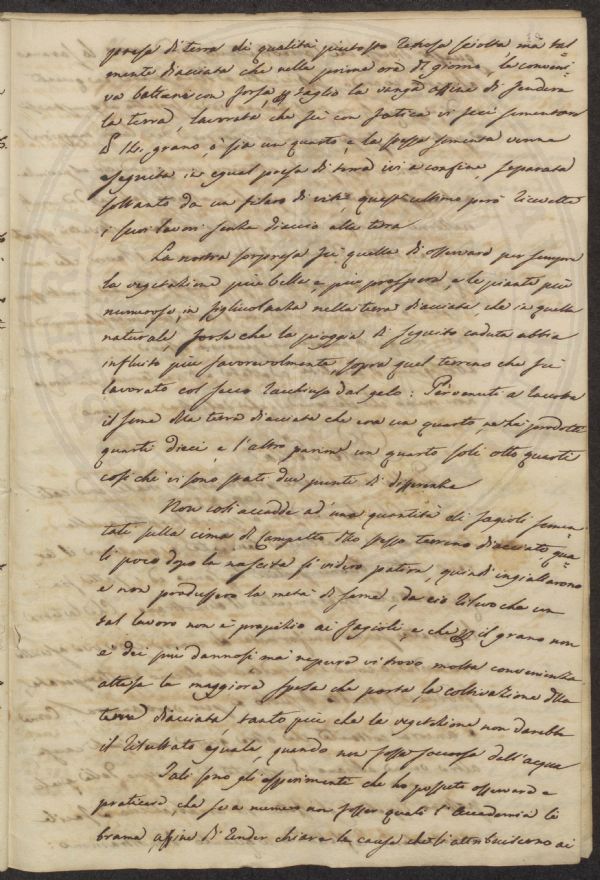 presa di terra di qualità piutosto renosa sciolta, ma tal
mente diacciata che nelle prime ore di giorno le conveni
va battere con forza il taglio la vanga affine di fendere
la terra, lavorata che fù con fatica vi feci sementare
L 14: grano, ò sia un quarto, e la stessa sementa venne
eseguita in egual presa di terra ivi a confine, separata
soltanto da un filaro di vite, quest'ultima però ricevette
i suoi lavori senza diaccio alla terra
La nostra sorpresa fù quella di osservare per sempre
la vegetazione più bella e più prosperosa, e le piante più
numerose, in figliolanza nella terra diacciata che in quella
naturale, forse che la pioggia di seguito caduta abbia
influito più favorevolmente, sopra quel terreno che fù
lavorato col secco racchiuso dal gelo: Pervenuti a raccolta
il seme della terra diacciata che era un quarto ne hà prodotti
quarti dieci, e l'altro parimi un quarto soli otto quarti
così chè vi sono stati due punti di differenza
Non così accadde ad una quantità di fagioli semen=
tati sulla cima di Campetto dello stesso terreno diacciato qua=
li poco dopo la nascita si videro patire, quindi ingiallarono
e non produssero la metà di seme, da ciò rilevo che un
tal lavoro non è propizio ai fagioli, e che per il grano non
è dei più dannosi mà neppure vi trovo molta convenienza
attesa la maggiore spesa che porta la coltivazione della
terra diacciata, tanto più che la vegetazione non darebbe
il risultato eguale, quando non fosse soccorsa dell'acqua
Tali sono gli esperimenti che ho possuto osservare e
praticare, che se a numero non fosser quali l'Accademia li
brama, affine di render chiara la causa che li attribuiscono ai